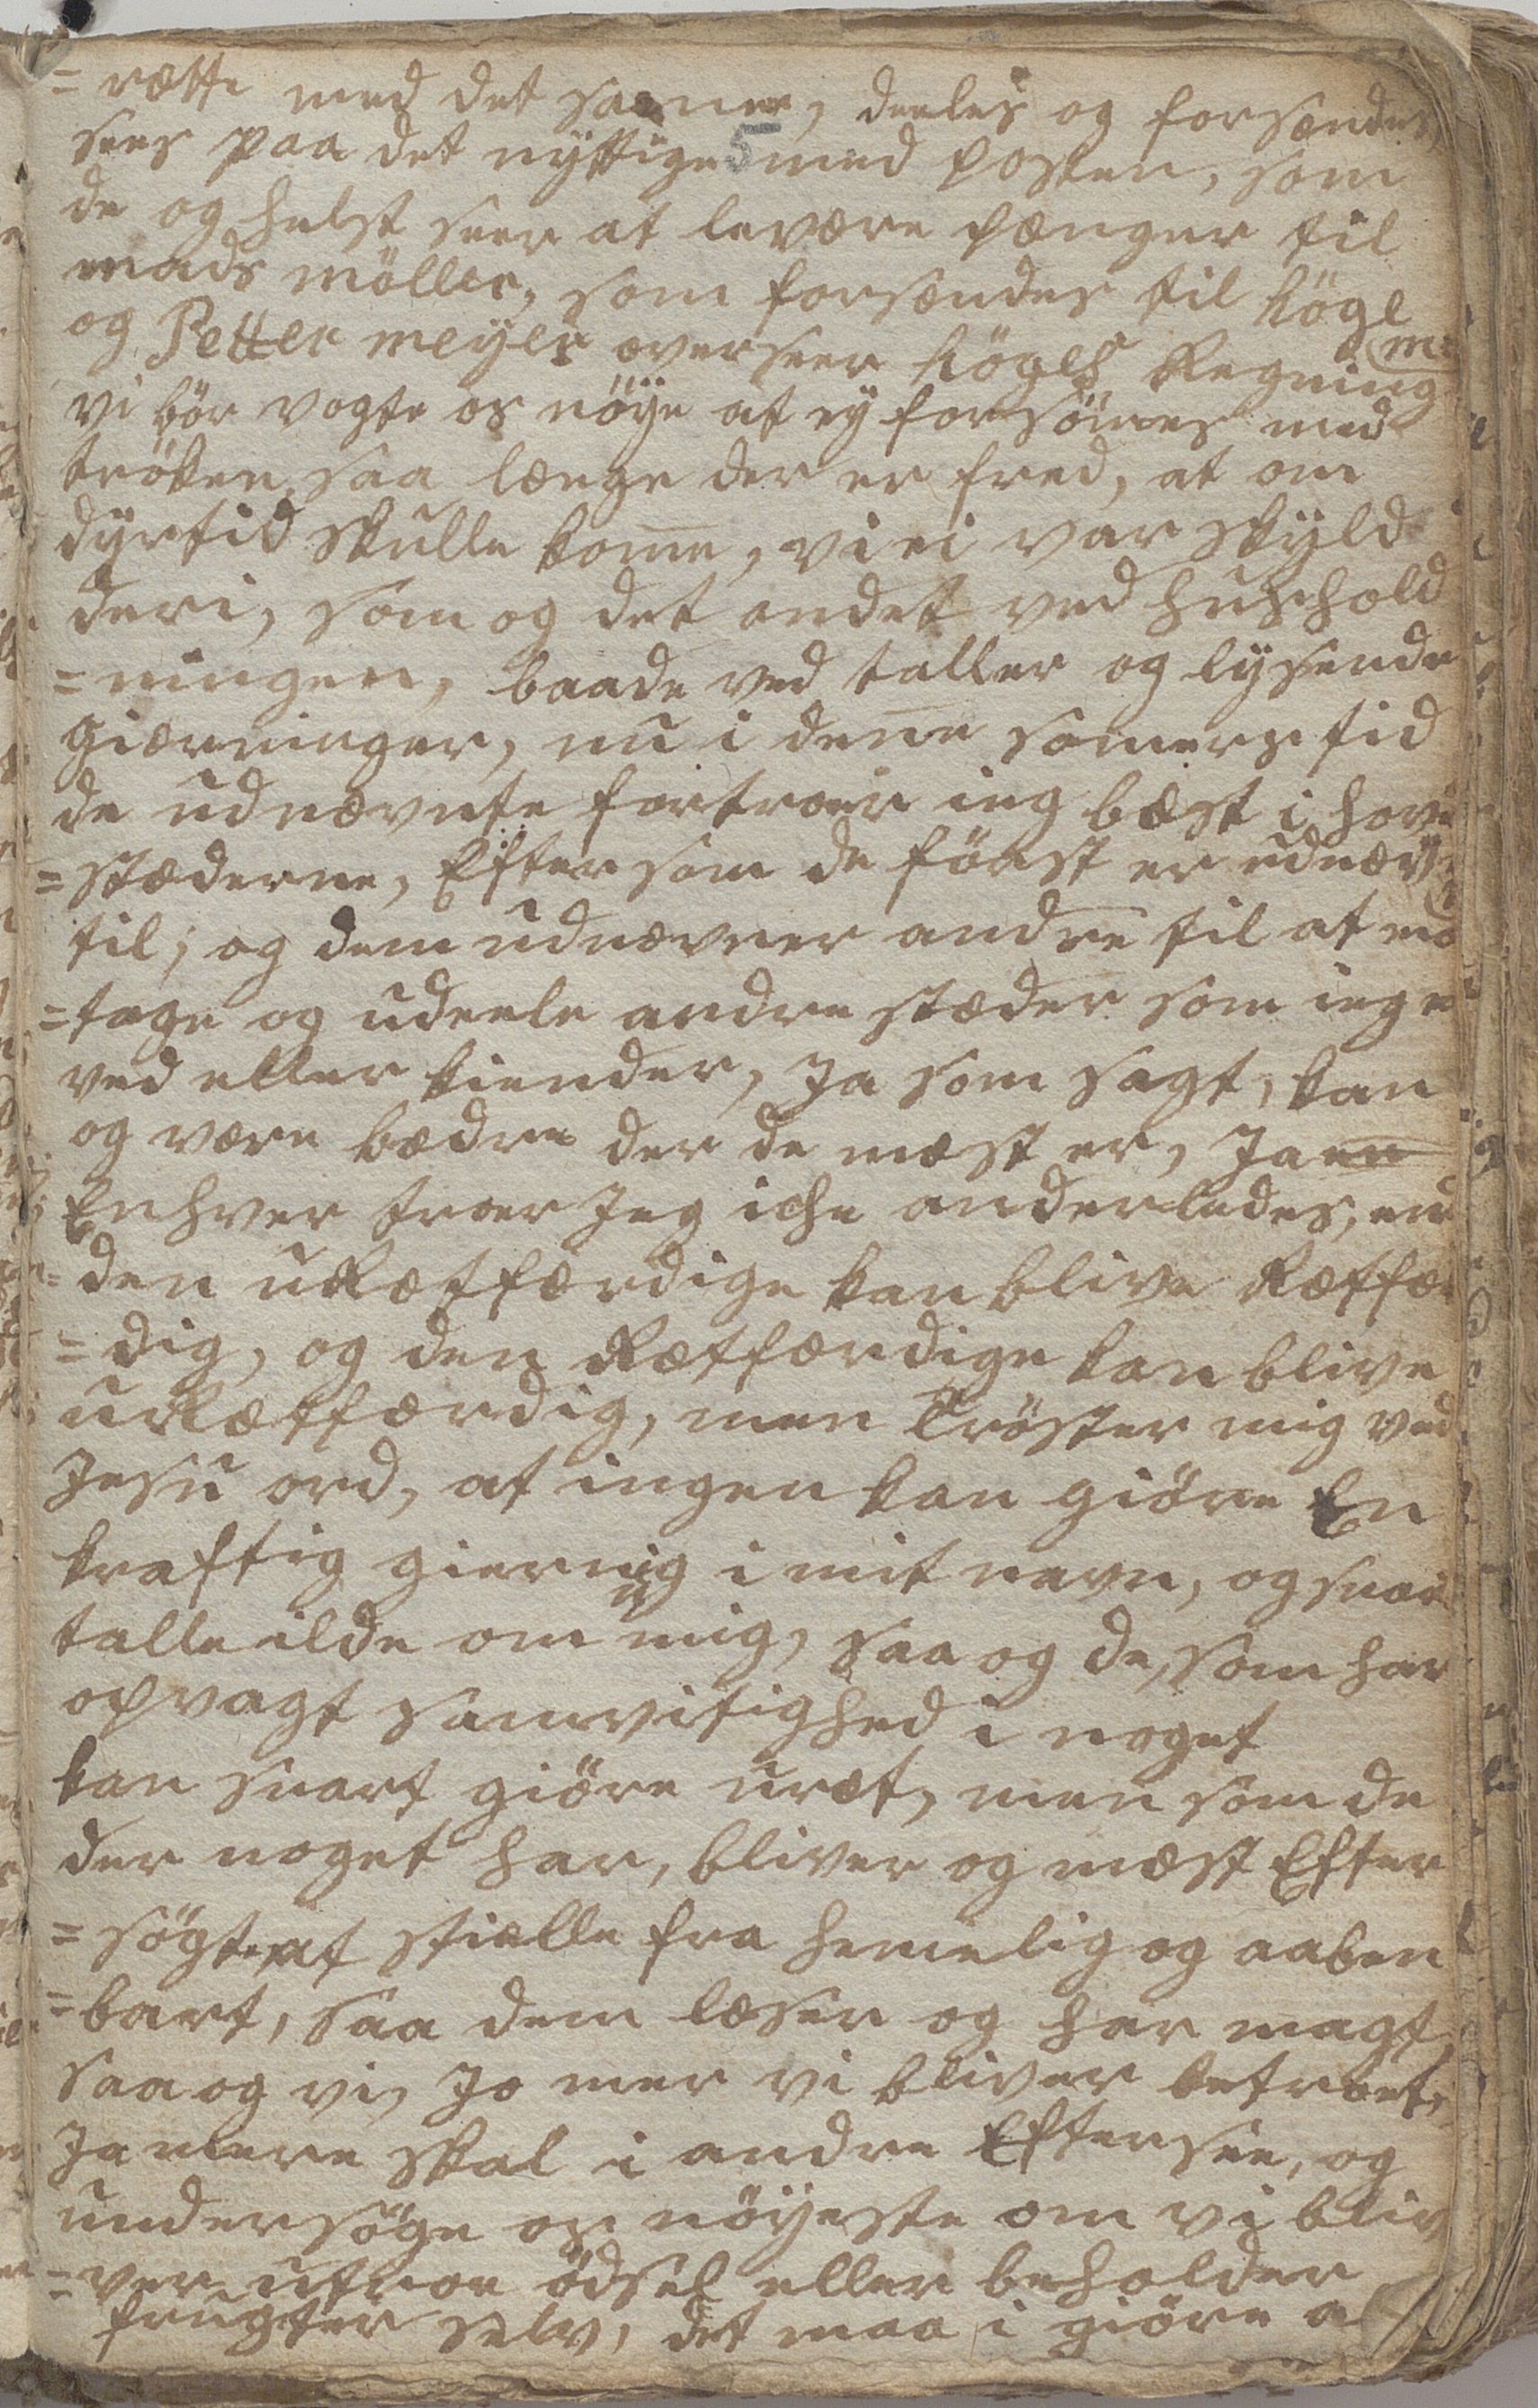 = rætte med det samme, deeles og forsendes,
sees paa det nyttige 5 med posten, som
de og helst seer at levere pænger til
mads möller, som forsendes til Högl
og Petter meyer overseer Högls Regning
vi bör vogte os nöye at ey forsömes med
tröken saa længe der er fred, at om
dyrtid skulle kome, vi ei var skyld
deri, som og det andet ved huushold
= ningen, baade ved taller og lysende
gierninger, nu i dene somers tid
de udnævnte fortroer ieg bæst i hove
= stæderne, Eftersom de först er udnæv
til, og dem udnævner andre til at mo
= tage og udeele andre stæder som ieg e
ved eller kiender, Ja som sagt, kan
og være bædre der de mæst er, Ja en
Enhver troer Jeg iche anderledes, end
den uRætfærdige kan blive Rætfær
= dig, og den Rætfærdige kan blive
uRætfærdig, men Tröster mig ved
Jesu ord, at ingen kan giöre En
kraftig gierning i mit navn, og snar
talle ilde om mig, saa og de, som har
opvagt samvitighed i noget
kan snart giöre uræt, men som de
der noget har, bliver og mæst Efter
= sögt at stielle fra hemelig og aaben
= bart, saa dem læser og har magt,
saa og vi, Jo mer vi bliver betroet,
Ja mere skal i andre Eftersee, og
undersöge os nöyeste om vi bliv
= ver utroe ödsel eller beholder
frugter selv, det maa i giöre a